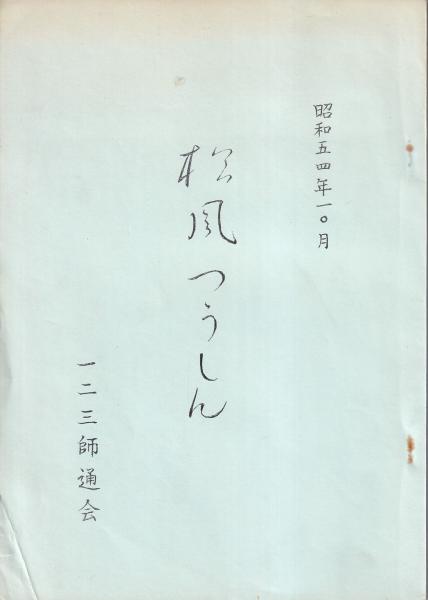 昭和五四年一〇月
松風つうしん
一二三師通会